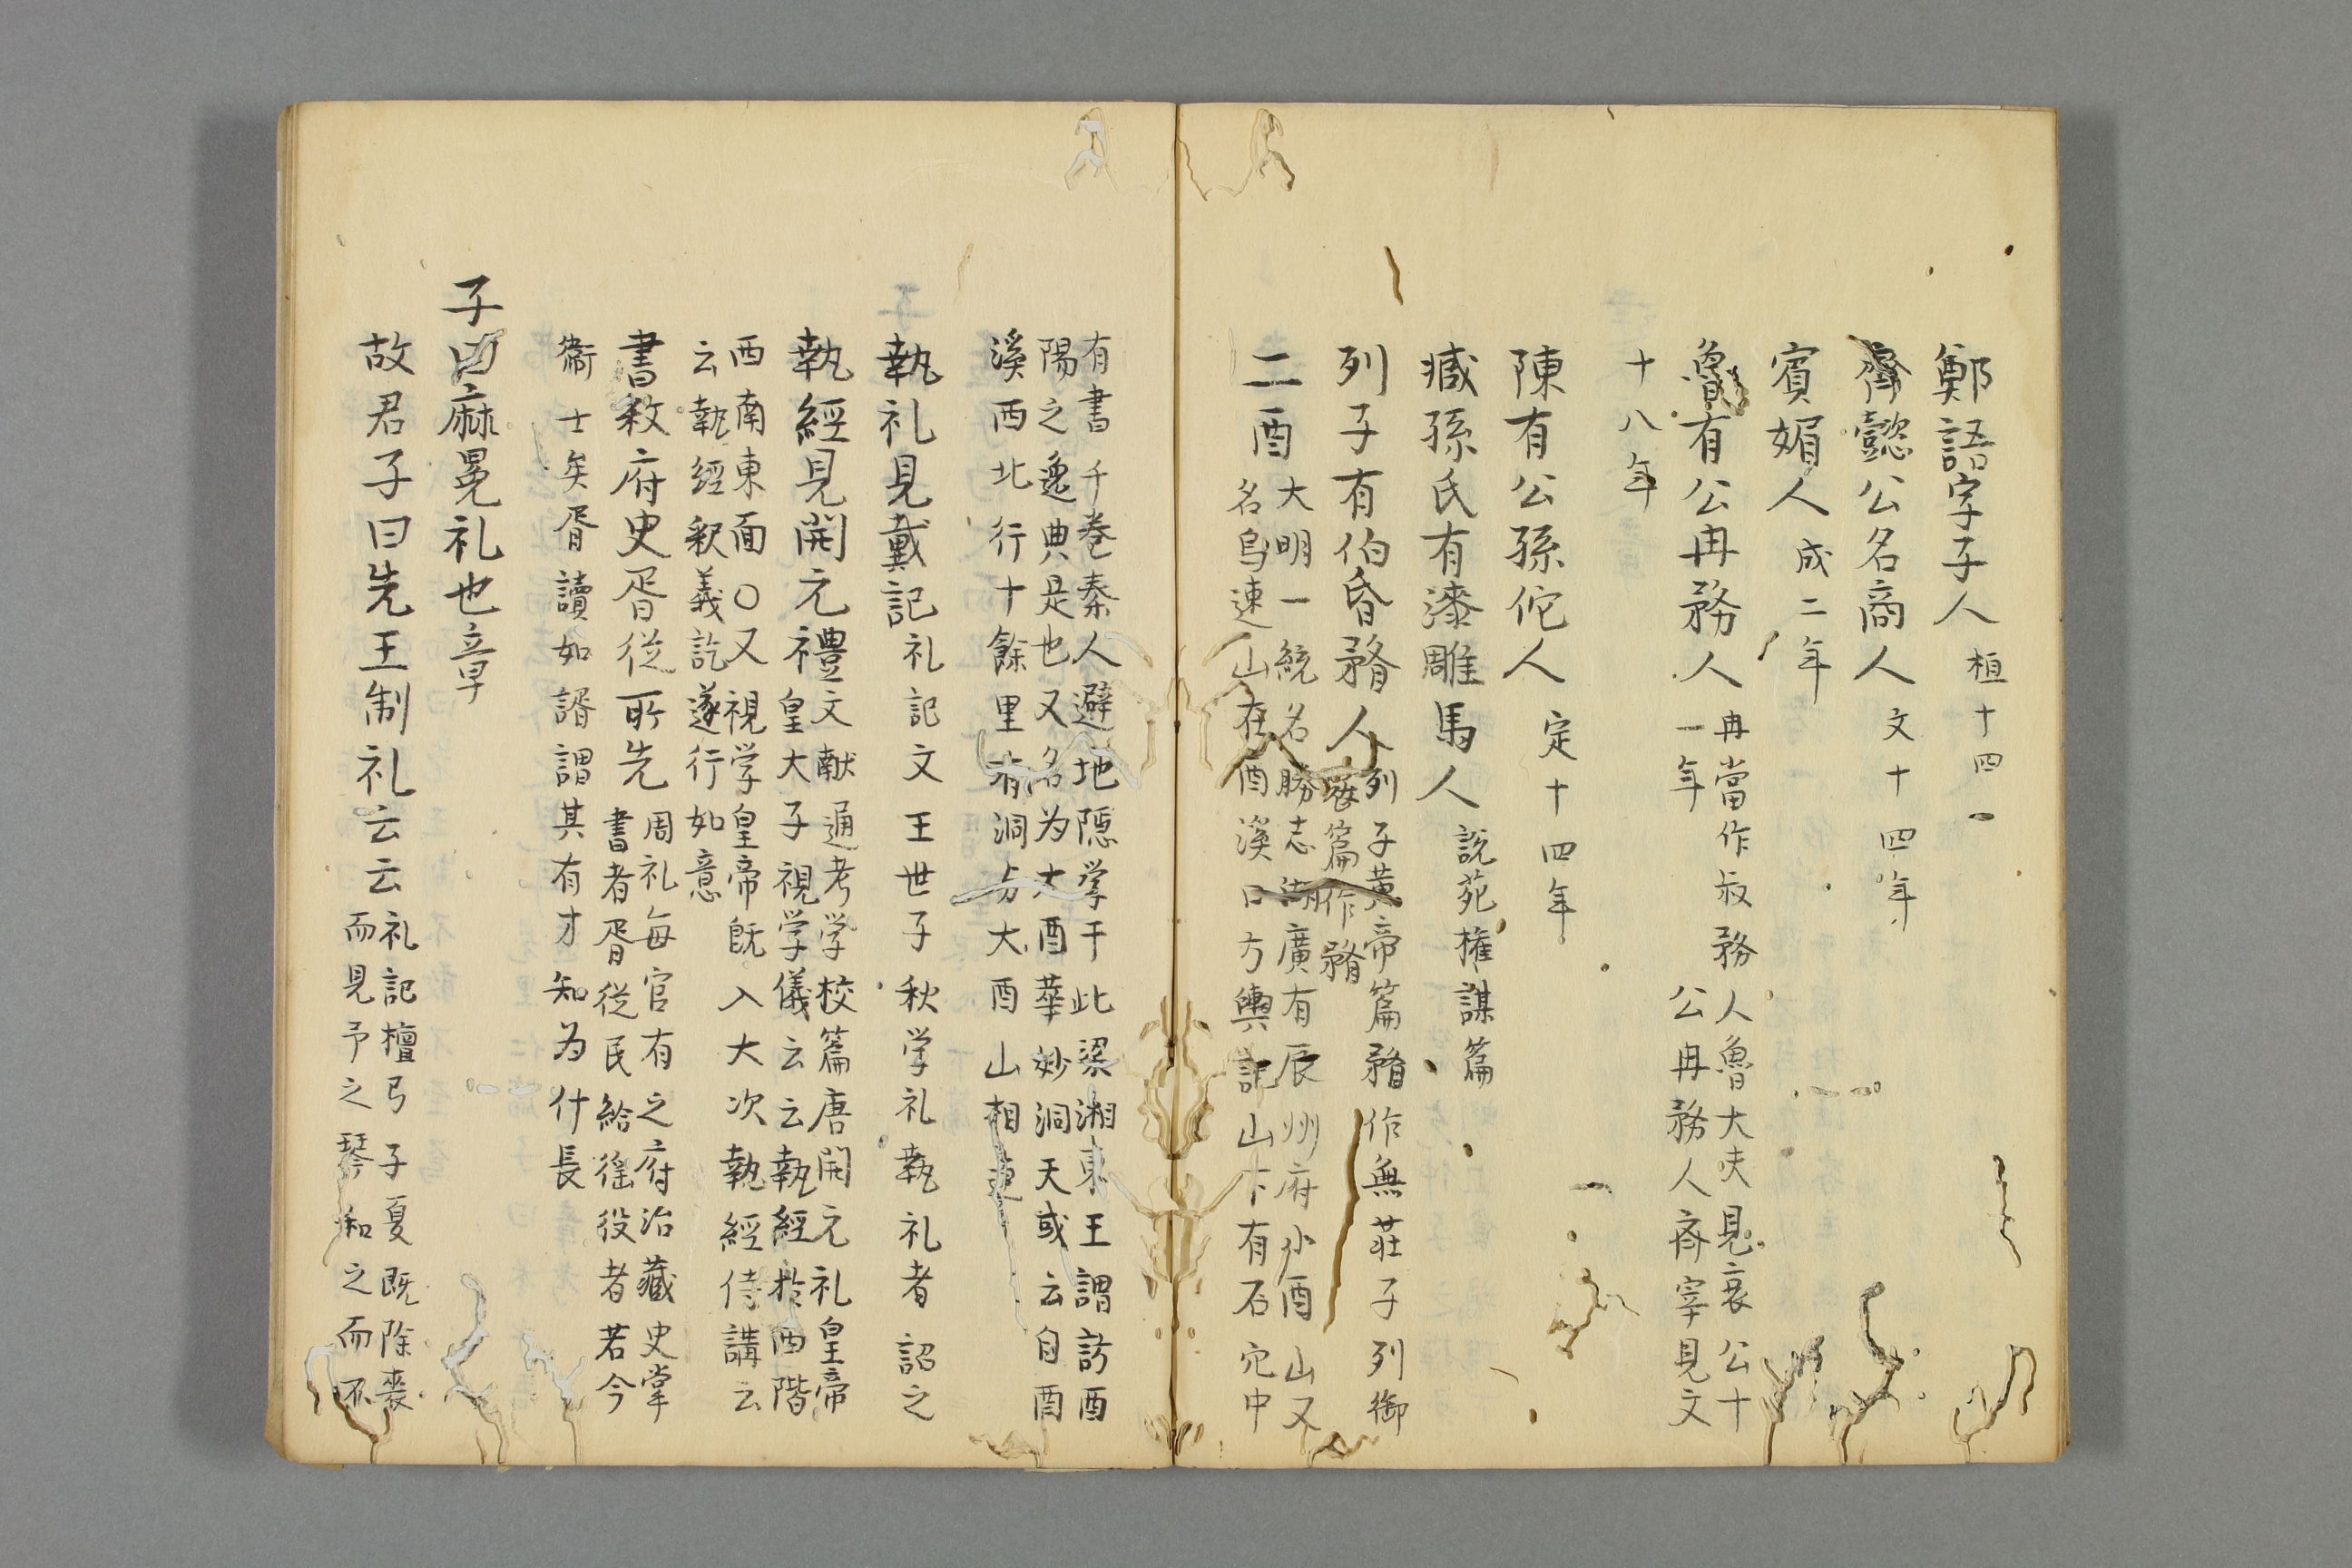 鄭語字子人 桓十四一
齊懿公名商人 文十四年
賓媚人 成二年
魯有公冉務人 冉當作叔務人魯大夫見哀公十
一年 公冉務人齊宰見文
十八年
陳有公孫佗人 定十四年
臧孫氏有漆雕馬人 説苑権謀篇
列子有伯昏瞀人 列子黄帝篇瞀作無荘子列御
寇篇作瞀
二酉 大明一統名勝志湖廣有辰州府小酉山又
名烏速山在酉溪口方輿記山下有石穴中
有書千巻秦人避地隠学于此梁湘東王謂訪酉
陽之逸典是也又名为大酉華妙洞天或云自酉
溪西北行十餘里有洞与大酉山相連
執礼見戴記 礼記文王世子秋学礼執礼者詔之
執經見開元禮 文献通考学校篇唐開元礼皇帝
皇大子視学儀云云執經於西階
西南東面〇又視学皇帝既入大次執經侍講云
云執經釈義訖遂行如意
書敘府史胥従所先 周礼毎官有之府治藏史掌
書者胥従民給徭役者若今
衞士矣胥讀如諝謂其有才知为什長
子曰麻冕礼也章
故君子曰先王制礼云云 礼記檀弓子夏既除喪
而見予之琴和之而不